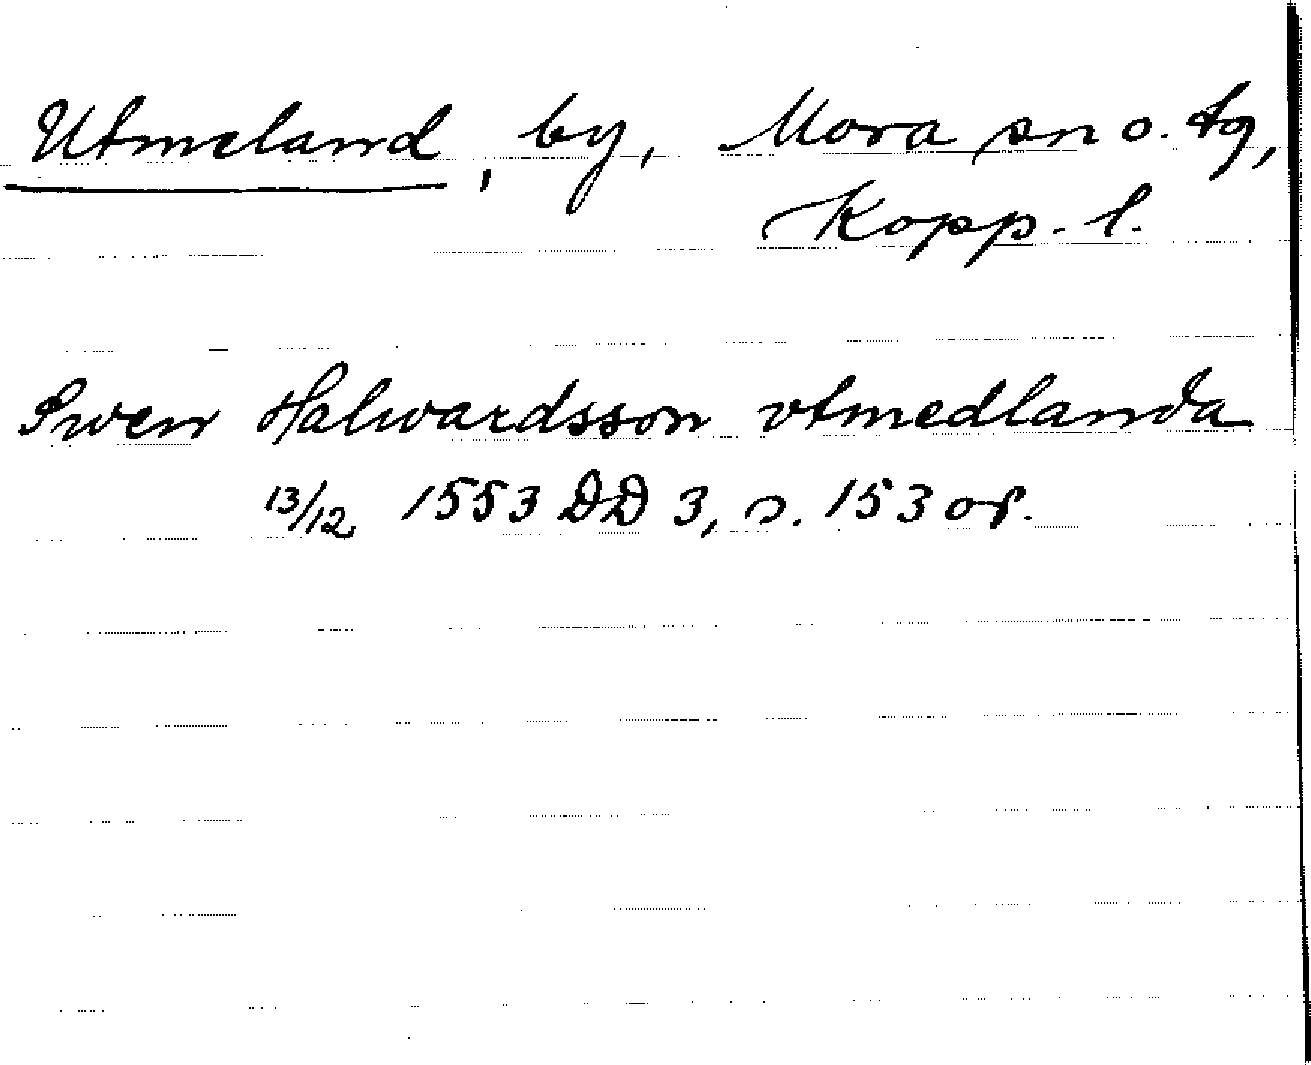 Utmeland, by, Mora sn o. tg,
Kopp. l.
Swen Halwardsson vtmedlanda
13/12 1553 DD 3, s. 153 of.